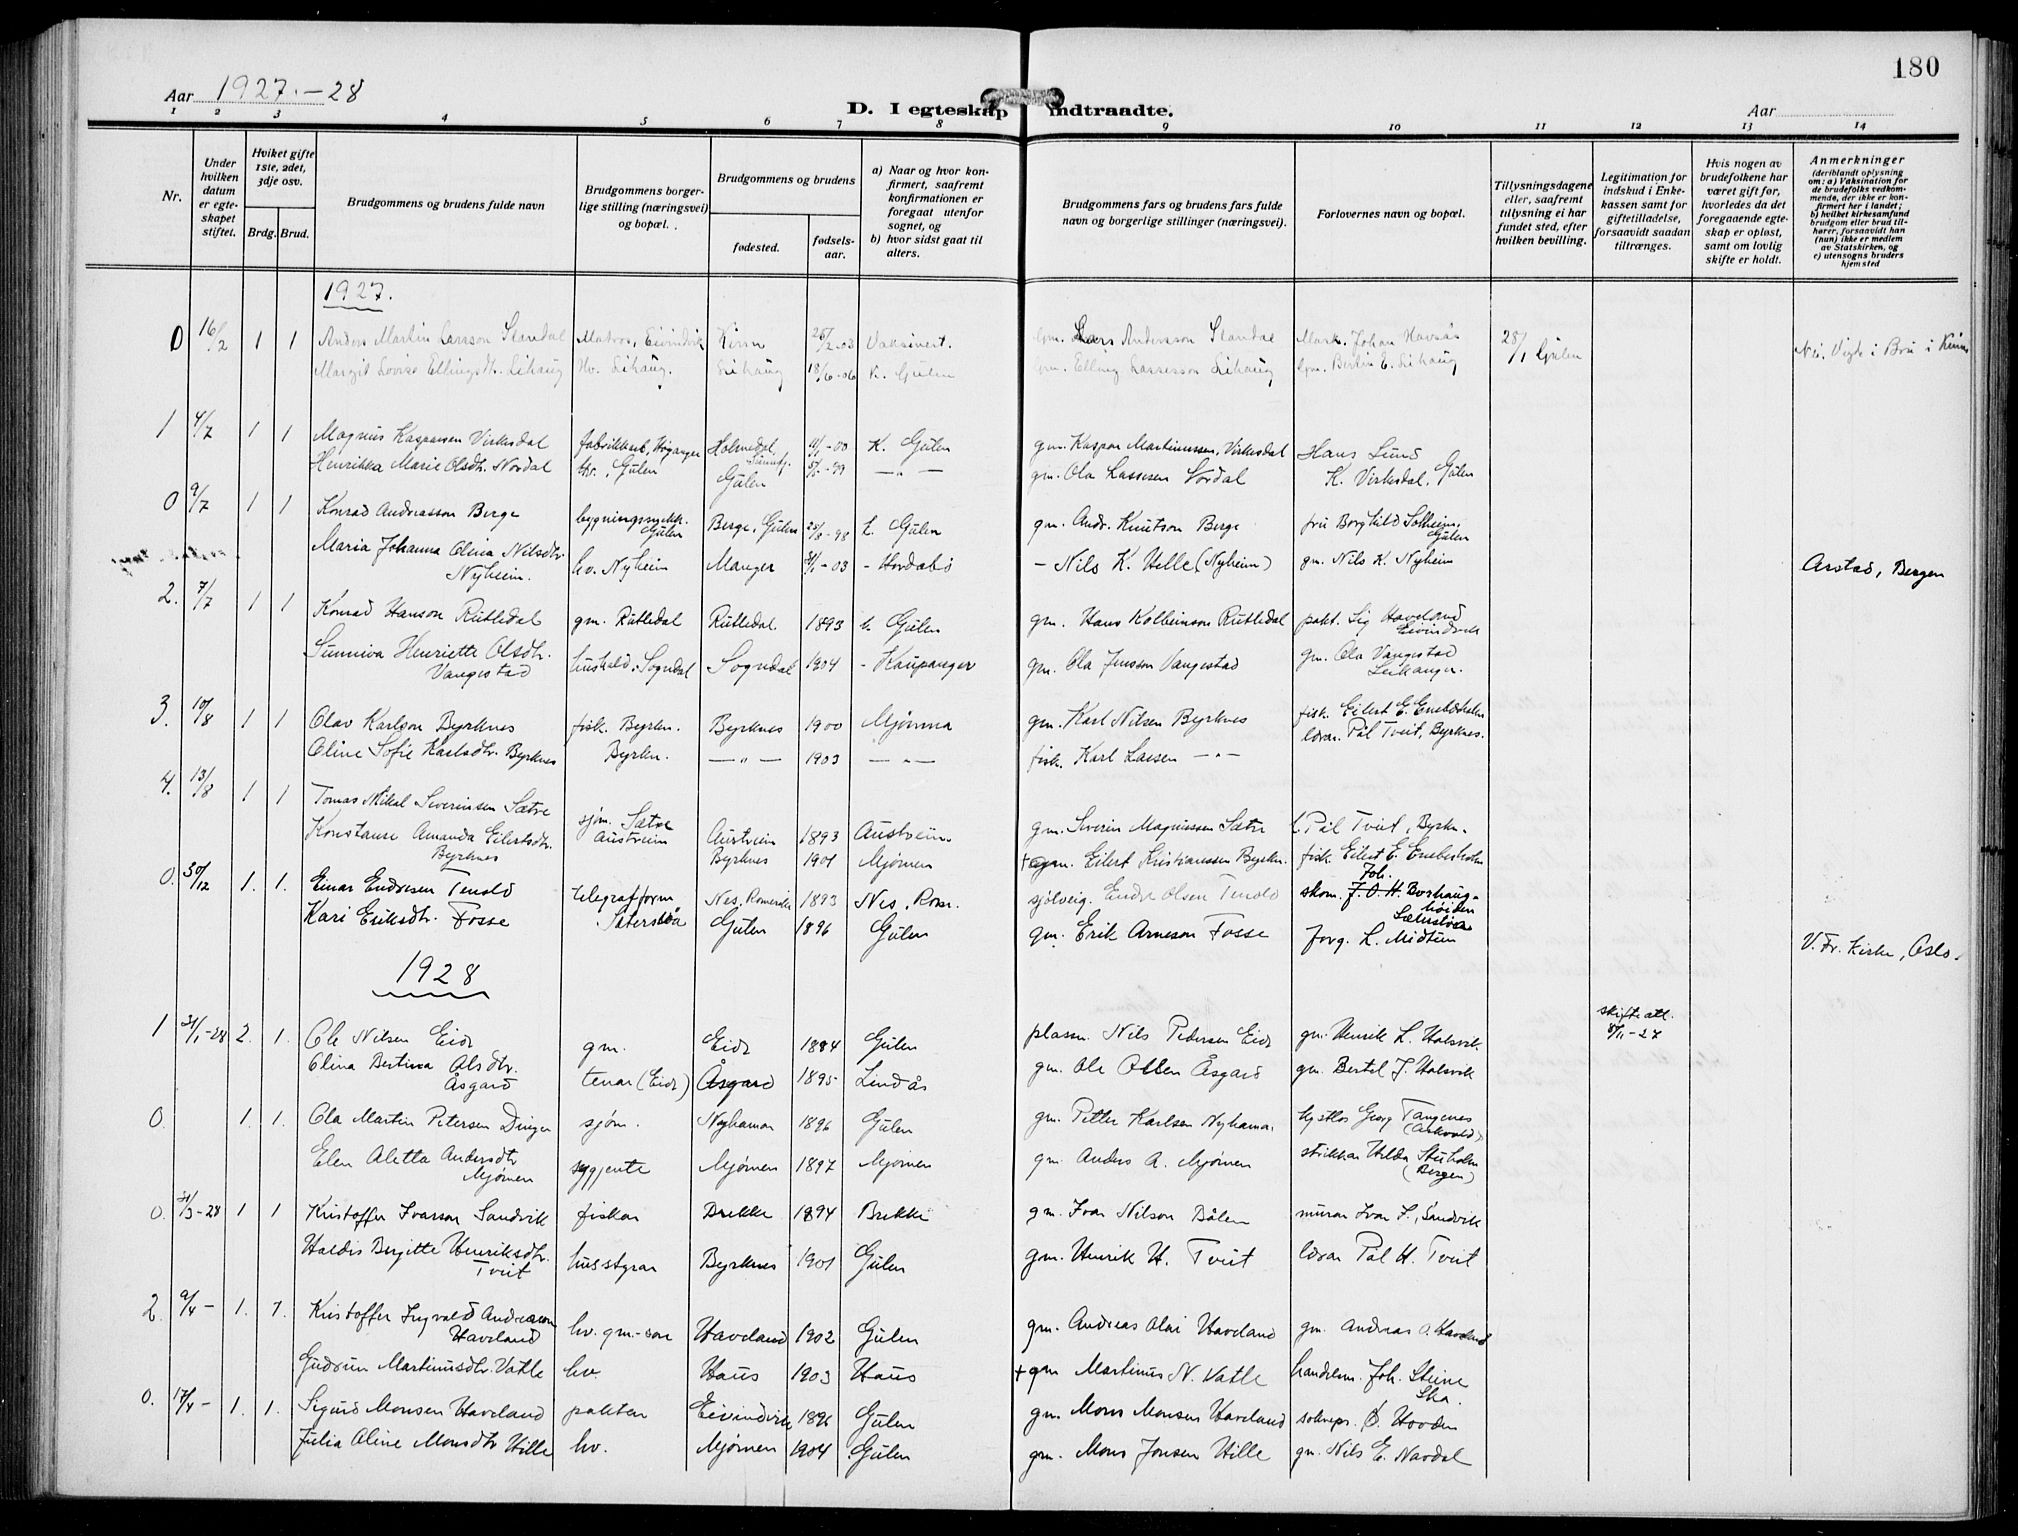 180
Aar 1927.-28
D. I egteskap indtraadte.
Aar
1 2 3 4 5 6 7 8 9 10 11 12 13 14
Nr.
Under hvilken datum er egteskapet stiftet.
Hviket gifte 1ste, 2det, 3dje osv.
Brdg. Brud.
Brudgommens og brudens fulde navn
Brudgommens borgerlige stilling (næringsvei) og bopæl.
Brudgommens og brudens
fødested.
fødselsaar.
a) Naar og hvor konfirmert, saafremt konfirmationen er foregaat utenfor sognet, og
b) hvor sidst gaat til alters.
Brudgommens fars og brudens fars fulde navn og borgerlige stillinger (næringsvei).
Forlovernes navn og bopæl.
Tillysningsdagene eller, saafremt tillysning ei har fundet sted, efter hvilken bevilling.
Legitimation for indskud i Enkekassen samt for giftetilladelse, forsaavidt saadan tiltrænges.
Hvis nogen av brudefolkene har været gift før, hvorledes da det foregaaende egteskap er opløst, samt om lovlig skifte er holdt.
Anmerkninger
(deriblandt oplysning om: a) Vaksination for de brudefolks vedkommende, der ikke er konfirmert her i landet; b) hvilket kirkesamfund brudgom eller brud tilhører, forsaavidt han (hun) ikke er medlem av Statskirken, og c) utensogns bruders hjemsted
1927.
0 16/2 1 1 Anders Martin Larsson Standal Matros, Eivindvik Kinn 26/2-03 Vaksinert. gm. Lars Andersson Standal Mark. Johan Havsås 28/1 Gulen Vigde i Bru i Kinn
Margit Lovise Ellingsdt. Lihaug Hv. Lihaug. Lihaug 18/6-06 K. Gulen gm. Elling Lassesson Lihaug gm. Bertin E. Lihaug
1 4/7 1 1 Magnus Kasparsen Virkesdal fabrikkarb. Høyanger Holmedal, Sunnf. -00 K. Gulen gm. Kaspar Martinussen, Virkesdal Hans Lund
Henrikka Marie Olsdtr. Nordal hv. Gulen Gulen -99 — " — gm. Ola Lassesen Nordal K. Virkesdal, Gulen
0 9/7 1 1 Konrad Andreasson Berge bygningssnekk. Gulen Berge, Gulen 25/8-98 k. Gulen gm. Andr. Knutson Berge fru Borghild Solheim, Gulen
Maria Johanna Olina Nilsdtr. Nyheim. hv. Nyheim Manger -03 - Hordabø - Nils K. Hille (Nyheim) gm. Nils K. Nyheim Årstad, Bergen
2. 7/7 1 1 Konrad Hanson Rutledal gm. Rutledal Rutledal. 1893 k. Gulen gm. Hans Kolbeinson Rutledal pakt. Sig Haveland Eivindvik
Sunniva Henriette Olsdtr. Vangestad hushald. Sogndal Sogndal 1904 - Kaupanger gm. Ola Jensson Vangestad gm. Ola Vangestad Leikanger.
3. 10/8 1 1 Olav Karlson Byrknes fisk. Byrkn. Byrknes 1900 Mjømna gm. Karl Nilsen Byrknes fisk. Eilert E. Enebærholm
Oline Sofie Karlsdtr. Byrknes Byrkn. — " — 1903 — " — fisk. Karl Larsen — " — lærar. Pål Tveit, Byrknes.
4. 13/8 1 1 Tomas Mikal Severinsen Sætre sjøm. Sætre Austrheim Austrheim 1893 Austrheim gm. Severin Magnussen Sætre l. Pål Tveit, Byrkn.
Konstanse Amanda Eilertsdtr. Byrknes Byrknes 1901 Mjømen + gm. Eilert Kristianssen Byrkn. fisk. Eilert E. Enebærholm
0. 30/12 1. 1. Einar Endresen Tenold telegrafform Nes, Romerike 1893 Nes, Rom. sjølveig. Endre Olsen Tenold skom. Joh. J. O. H. Borhaug-høiden Sæterstøa
Kari Eriksdtr. Fosse Sæterstøa Gulen 1896 Gulen gm. Erik Arneson Fosse Jorg. L. Midtun V. Fr. Kirke, Oslo.
1928
1 31/1-28 2. 1. Ole Nilsen Eide gm. Eide 1884 Gulen plassm. Nils Pedersen Eide gm. Henrik L. Halsvik. skifteatt. 8/11-27
Olina Bertina Olsdtr. Åsgard tenar (Eide) Åsgard 1895 Lindås gm. Ole Olsen Åsgard gm. Bertel J. Halsvik
0. 1. 1. Ola Martin Petersen Dingen sjøm. Nyhamar 1896 Gulen gm. Petter Karlsen Nyhamar. Georg Tangenes (Askvoll)
Elen Aletta Andersdtr Mjømen syggjente Mjømen 1897 Mjømen gm. Anders A. Mjømen strikkar Hilda Stuholm (Bergen)
0. 31/3-28 1 1 Kristoffer Ivarson Sandvik fiskar Brekke 1894 Brekke gm. Ivar Nilson Bålen murar Ivar I. Sandvik
Haldis Bergitte Henriksdtr. Tveit husstyrar Byrknes 1901 Gulen gm. Henrik H. Tveit lærar Pål H. Tveit
2 9/4 - 1. 1. Kristoffer Ingvald Andreasson Haveland hv. gm.-son Haveland 1902 Gulen gm. Andreas Olai Haveland gm. Andreas O. Haveland
Gudrun Martinusdtr. Vatle hv. Haus 1903 Haus + gm Martinus N. Vatle handelsm. Joh. Steine
0. 17/4 - 1. 1. Sigurd Monsen Haveland paktar Eivindvik 1896 Gulen gm. Mons Monsen Haveland soknepr. O. Hovden
Julia Oline Monsdtr Hille hv. Mjømen 1904 Gulen gm. Mons Jonsen Hille gm. Nils E. Nordal